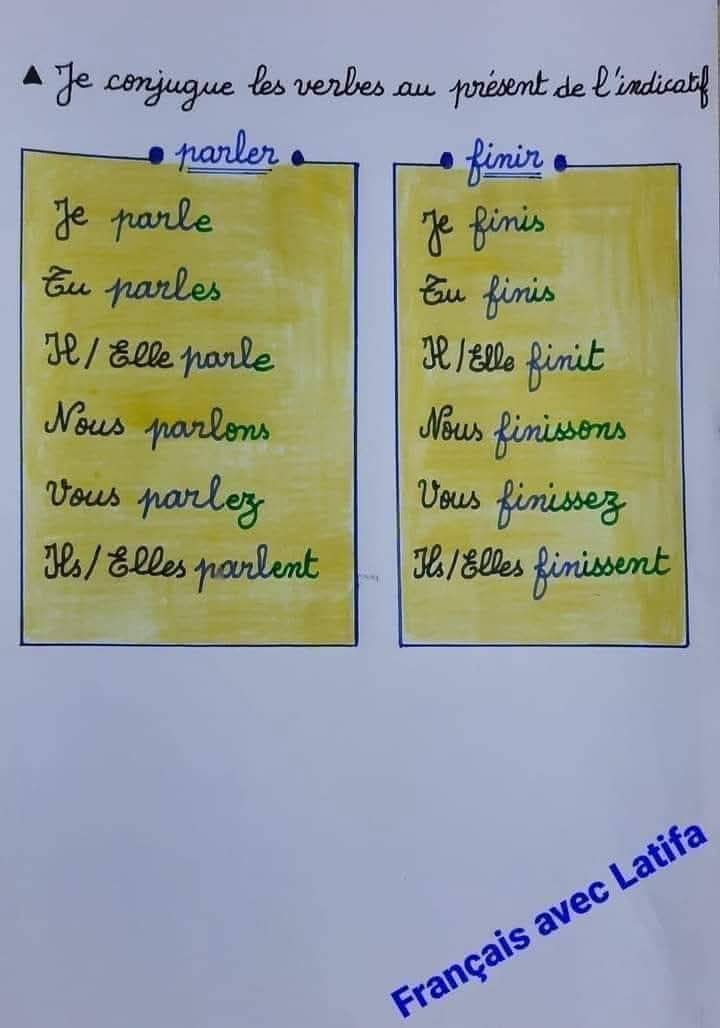 ▲ Je conjugue les verbes au présent de l'indicatif
parler
Je parle
Tu parles
Il / Elle parle
Nous parlons
Vous parlez
Ils / Elles parlent
finir
Je finis
Tu finis
Il / Elle finit
Nous finissons
Vous finissez
Ils / Elles finissent
Français avec Latifa